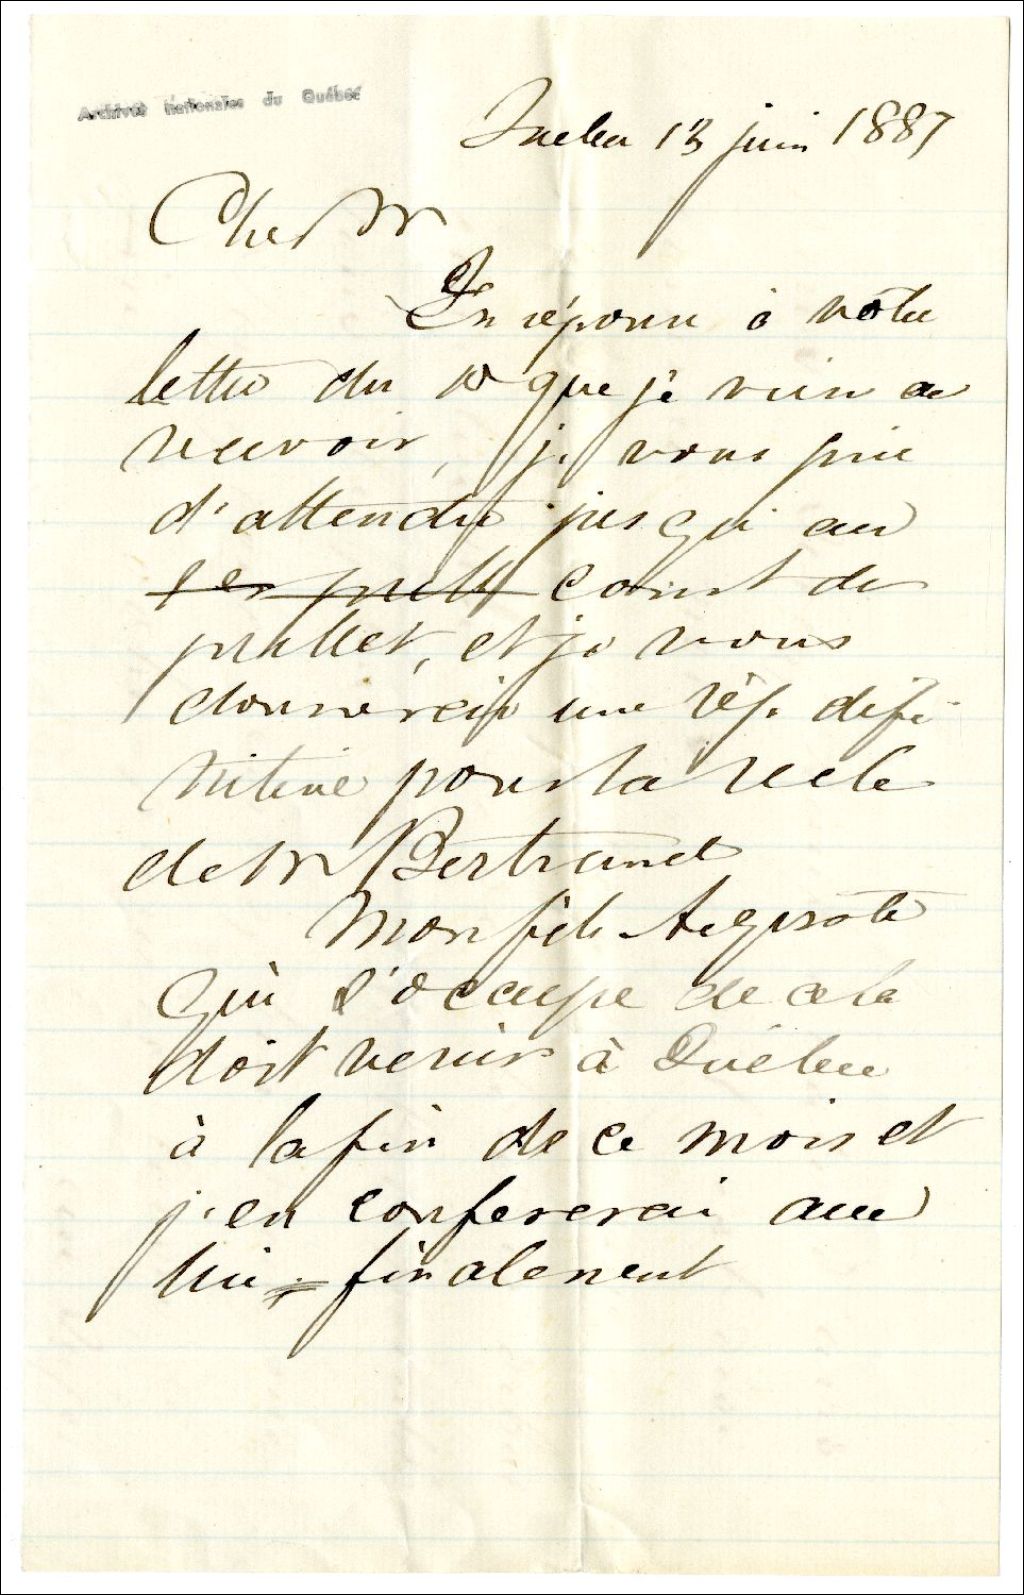 Archives Nationales du Québec
Québec 13 juin 1887
Cher Mr
En réponse à votre
lettre du 10 que je viens de
recevoir, je vous prie
d'attendre jusqu'au
court de
juillet, et je vous
donnerai une rép. défi
nitive pour la
de Mr Bertrand
Mon fils Auguste
qui s'occupe de cela
doit venir à Québec
à la fin de ce mois et
j'en confererai avec
lui finalement